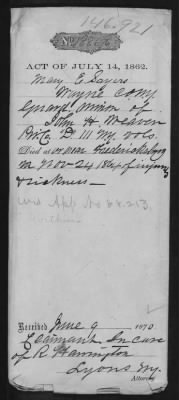 146.921
No.
ACT OF JULY 14, 1862.
Mary E. Sayers
Wayne Comy
Guard. Minor of
John H Weaver
Pri. Co. D 111 Ny. Vols.
Died at or near Fredericksburg
Nov 24 1864 of injury
& sickness—
Wid App No
Received June 9 1870.
Claimant In care
of R Harrington
Lyons Ny.
Attorney